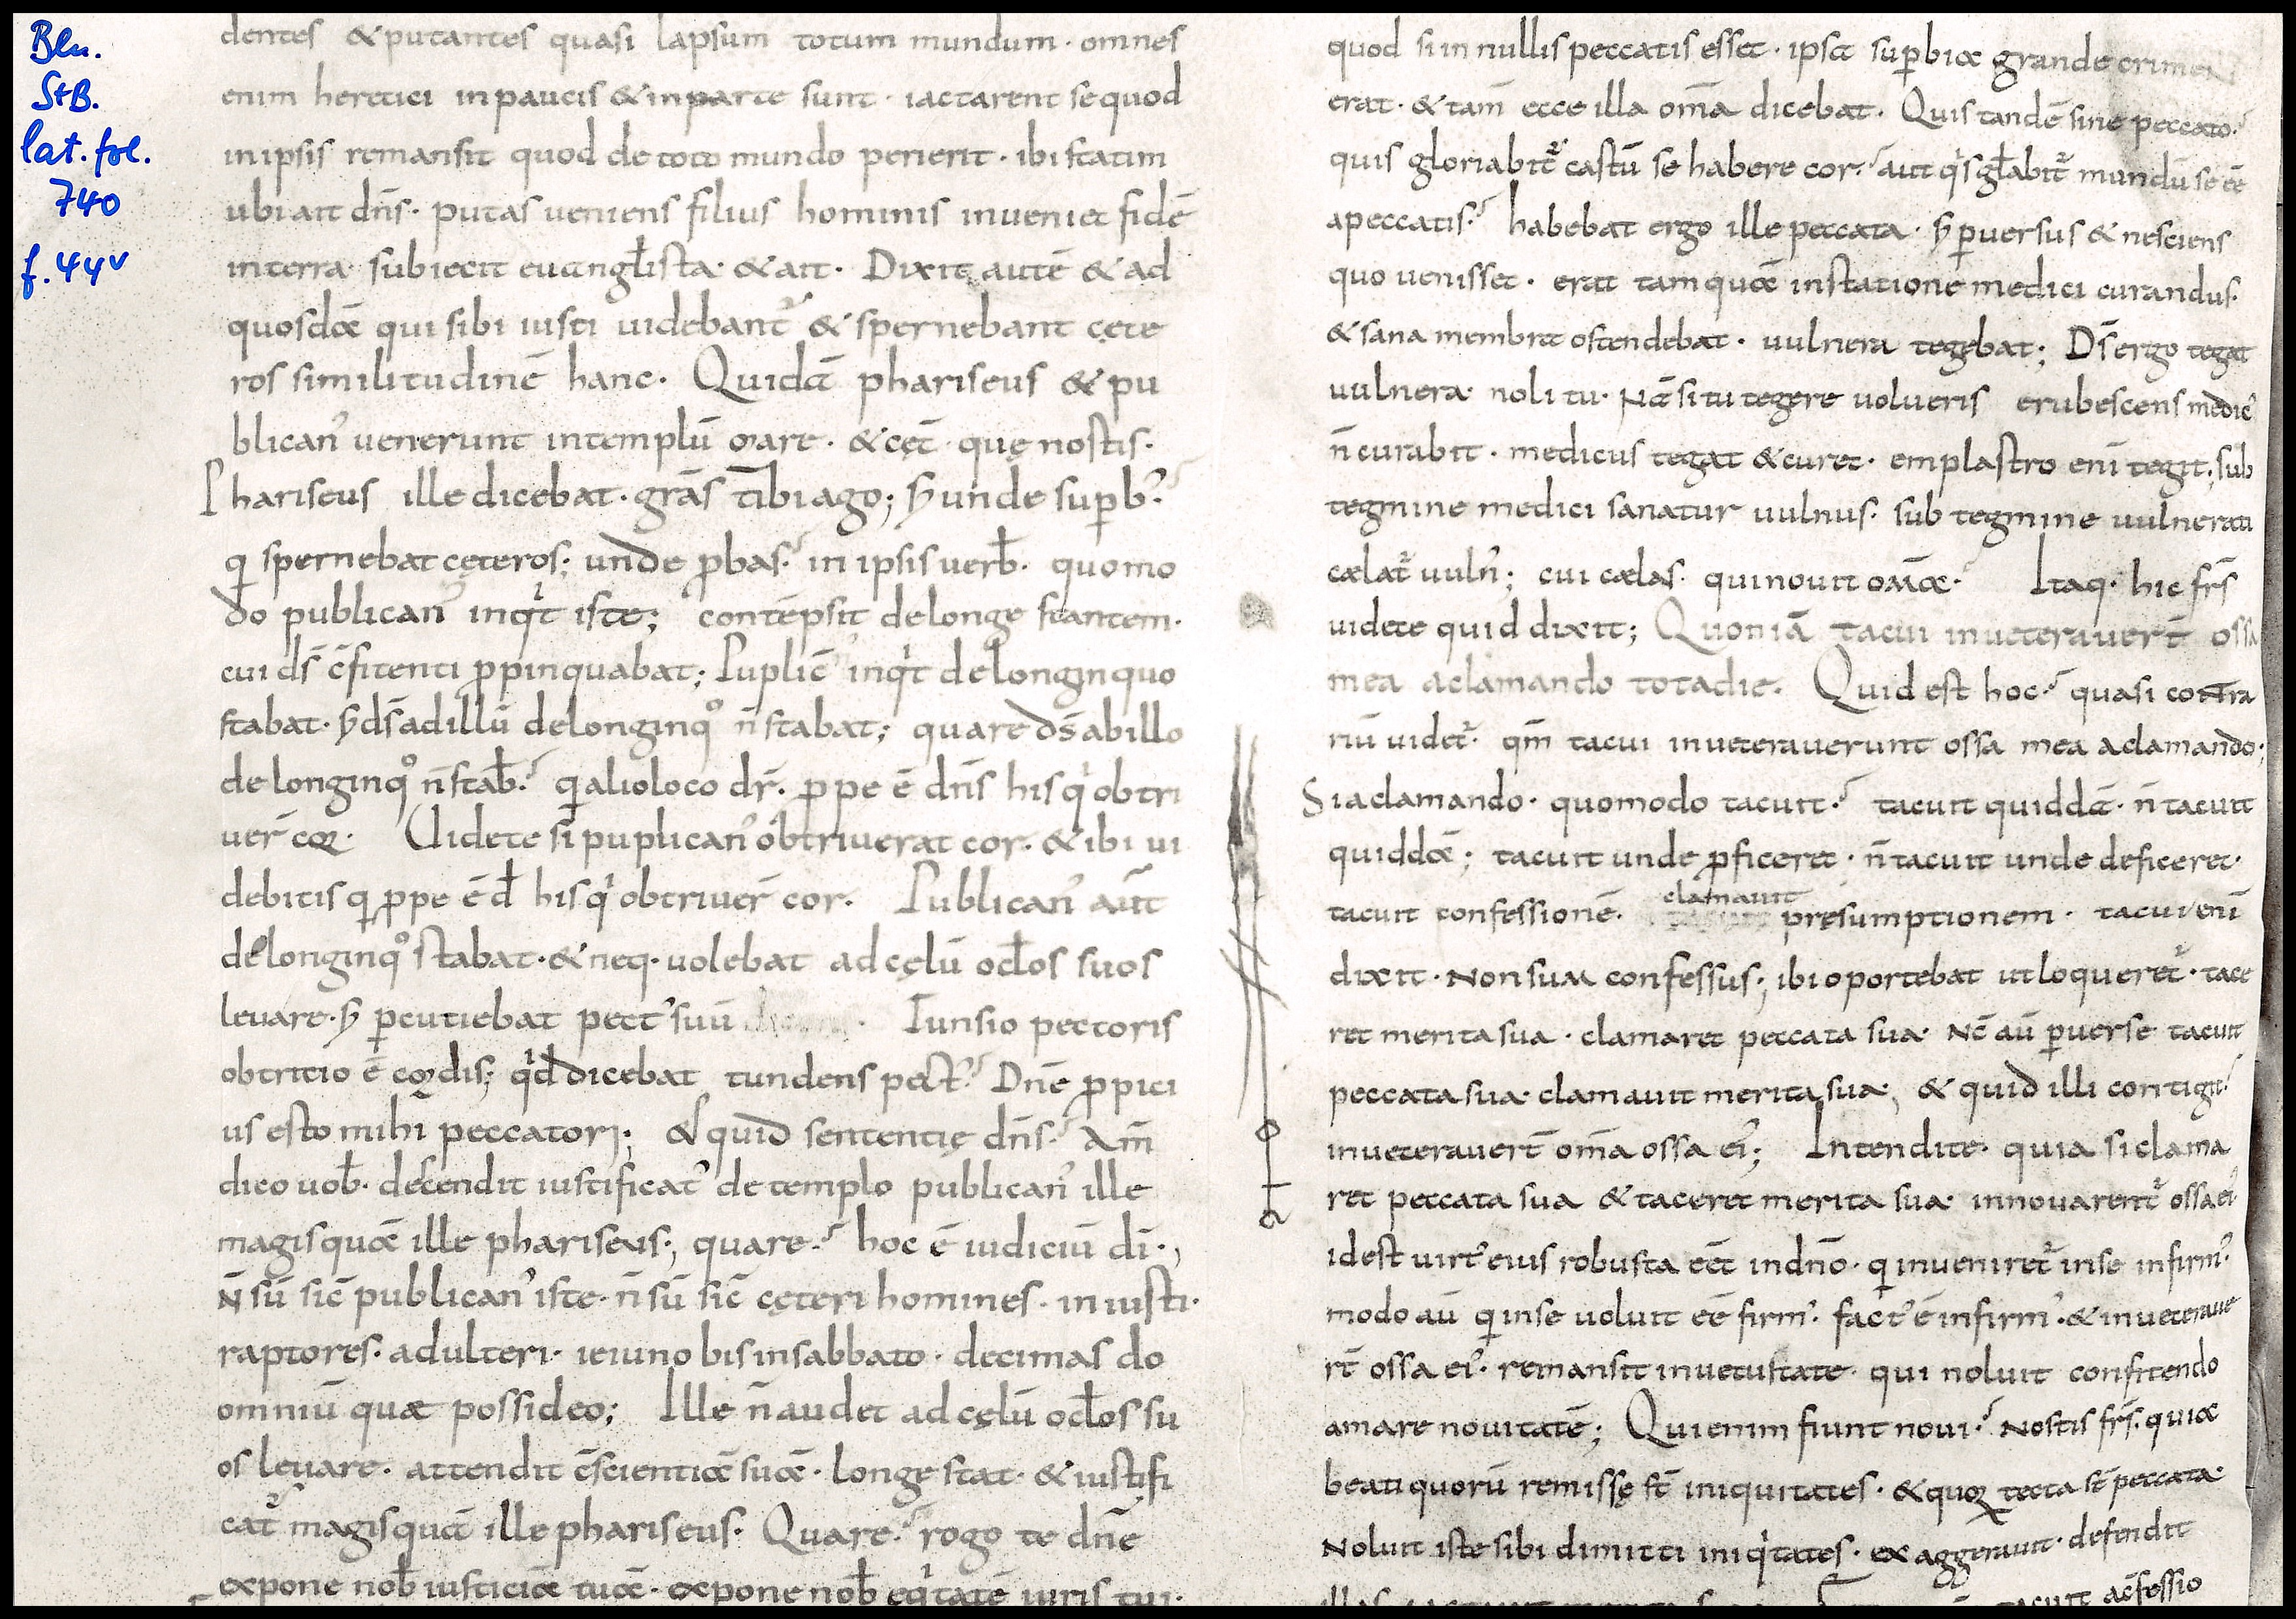 Bln.
StB.
lat. fol.
740
f. 44v
dentes & putantes quasi lapsum totum mundum · omnes
enim heretici in paucis & in parte sunt · iactarent se quod
in ipsis remansit quod de toto mundo perierit · ibi statim
ubi ait dn̄s · putas veniens filius hominis inveniet fidē
in terra · subiecit evangl̄ista · & ait · Dixit autē & ad
quosdā qui sibi iusti videbant᷑ & spernebant cęte
ros similitudinē hanc · Quidā phariseus & pu
blican᾽ venerunt in templū orare · & cęt̄ · quę nostis ·
Phariseus ille dicebat · grās tibi ago; s; unde sup̄b᾽ ·
q; spernebat cęteros; unde p̄bas? in ipsis verb̄ · quomo
do publican᾽ inqⁱt iste; contēpsit de longe stantem ·
cui ds̄ c̄fitenti p̄pinquabat; Puplic᾽ inqⁱt de longinquo
stabat · s; ds̄ ad illū de longinq° n̄ stabat; quare ds̄ ab illo
de longinq° n̄ stab̄? q; alio loco dr̄ · p̄pe ē dn̄s his qⁱ obtri
ver̄ cor · Videte si puplican᾽ obtriverat cor · & ibi vi
debitis q; p̄pe ē d̄ his qⁱ obtriver̄ cor · Publican᾽ aūt
de longinq° stabat · & neq· volebat ad cęlū ocl̄os suos
levare · s; p̄cutiebat pect᾽ suū · Tunsio pectoris
obtritio ē cordis; qⁱd dicebat tundens pect᾽? Dn̄e p̄pici
us esto mihi peccatori; & quid sententię dn̄s? Am̄
dico vob̄ · descendit iustificat᾽ de templo publican᾽ ille
magis quā ille phariseus; quare? hoc ē iudiciū dī;
N̄ sū sic̄ publican᾽ iste · n̄ sū sic̄ cęteri homines · iniusti ·
raptores · adulteri · ieiuno bis in sabbato · decimas do
omniū quæ possideo; Ille n̄ audet ad cęlū ocl̄os su
os levare · attendit c̄scientiā suā · longe stat · & iustifi
cat᷑ magis quā ille phariseus · Quare? rogo te dn̄e
expone nob̄ iusticiā tuā · expone nob̄ eqⁱtatē iuris tui ·
quod si in nullis peccatis esset · ipsa sup̄bia grande crimen
erat · & tam̄ ecce illa om̄a dicebat · Quis tandē sine peccato?
quis gloriabit᷑ castū se habere cor? aut qⁱs gl̄abit᷑ mundū se eē
a peccatis? habebat ergo ille peccata · s; p̄versus & nesciens
quo venisset · erat tamquā in statione medici curandus ·
& sana membra ostendebat · vulnera tegebat; Ds̄ ergo tegat
vulnera · noli tu · Nā si tu tegere volueris erubescens medic᾽
n̄ curabit · medicus tegat & curet · emplastro enī tegit; sub
tegmine medici sanatur vulnus · sub tegmine vulnerati
cælat᷑ vuln᾽; cui cælas · qui novit om̄ia · Itaq· hic frs̄
videte quid dixit; Quoniā tacui inveteraver̄t ossa
mea a clamando tota die · Quid est hoc? quasi contra
riū videt᷑ · qm̄ tacui inveteraverunt ossa mea a clamando;
Si a clamando · quomodo tacuit? tacuit quiddā · n̄ tacuit
quiddā; tacuit unde p̄ficeret · n̄ tacuit unde deficeret ·
clamavit
tacuit confessionē · presumptionem · tacui enī
dixit · Non sum confessus; ibi oportebat ut loqueret᷑ · tace
ret merita sua · clamaret peccata sua · Nc̄ aū p̄verse tacuit
peccata sua · clamavit merita sua; & quid illi contigit?
inveteraver̄t om̄a ossa ei᾽; Intendite · quia si clama
ret peccata sua & taceret merita sua · innovarent᷑ ossa ei᾽
id est virt᾽ eius robusta eēt in dn̄o · q; inveniret᷑ in se infirm᾽ ·
modo aū q; in se voluit eē firm᾽ · fact᾽ ē infirm᾽ · & inveterave
rt̄ ossa ei᾽ · remansit in vetustate · qui noluit confitendo
amare novitatē; Qui enim fiunt novi? Nostis frs̄ · quia
beati quorū remissę st̄ iniquitates · & quor tecta st̄ peccata ·
Noluit iste sibi dimitti iniqⁱtates · exaggeravit · defendit